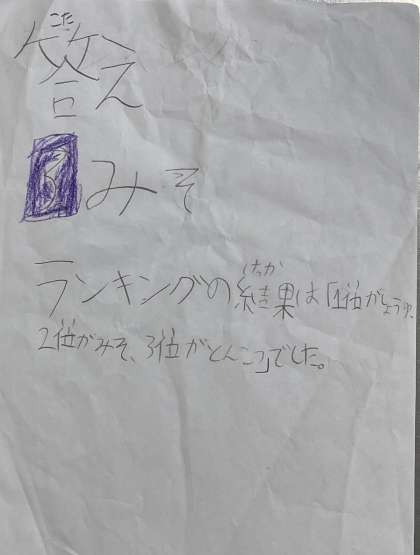 こた
答え
③みそ
けっか
ランキングの結果は「1位がしょうゆ、
2位がみそ、3位がとんこつ」でした。